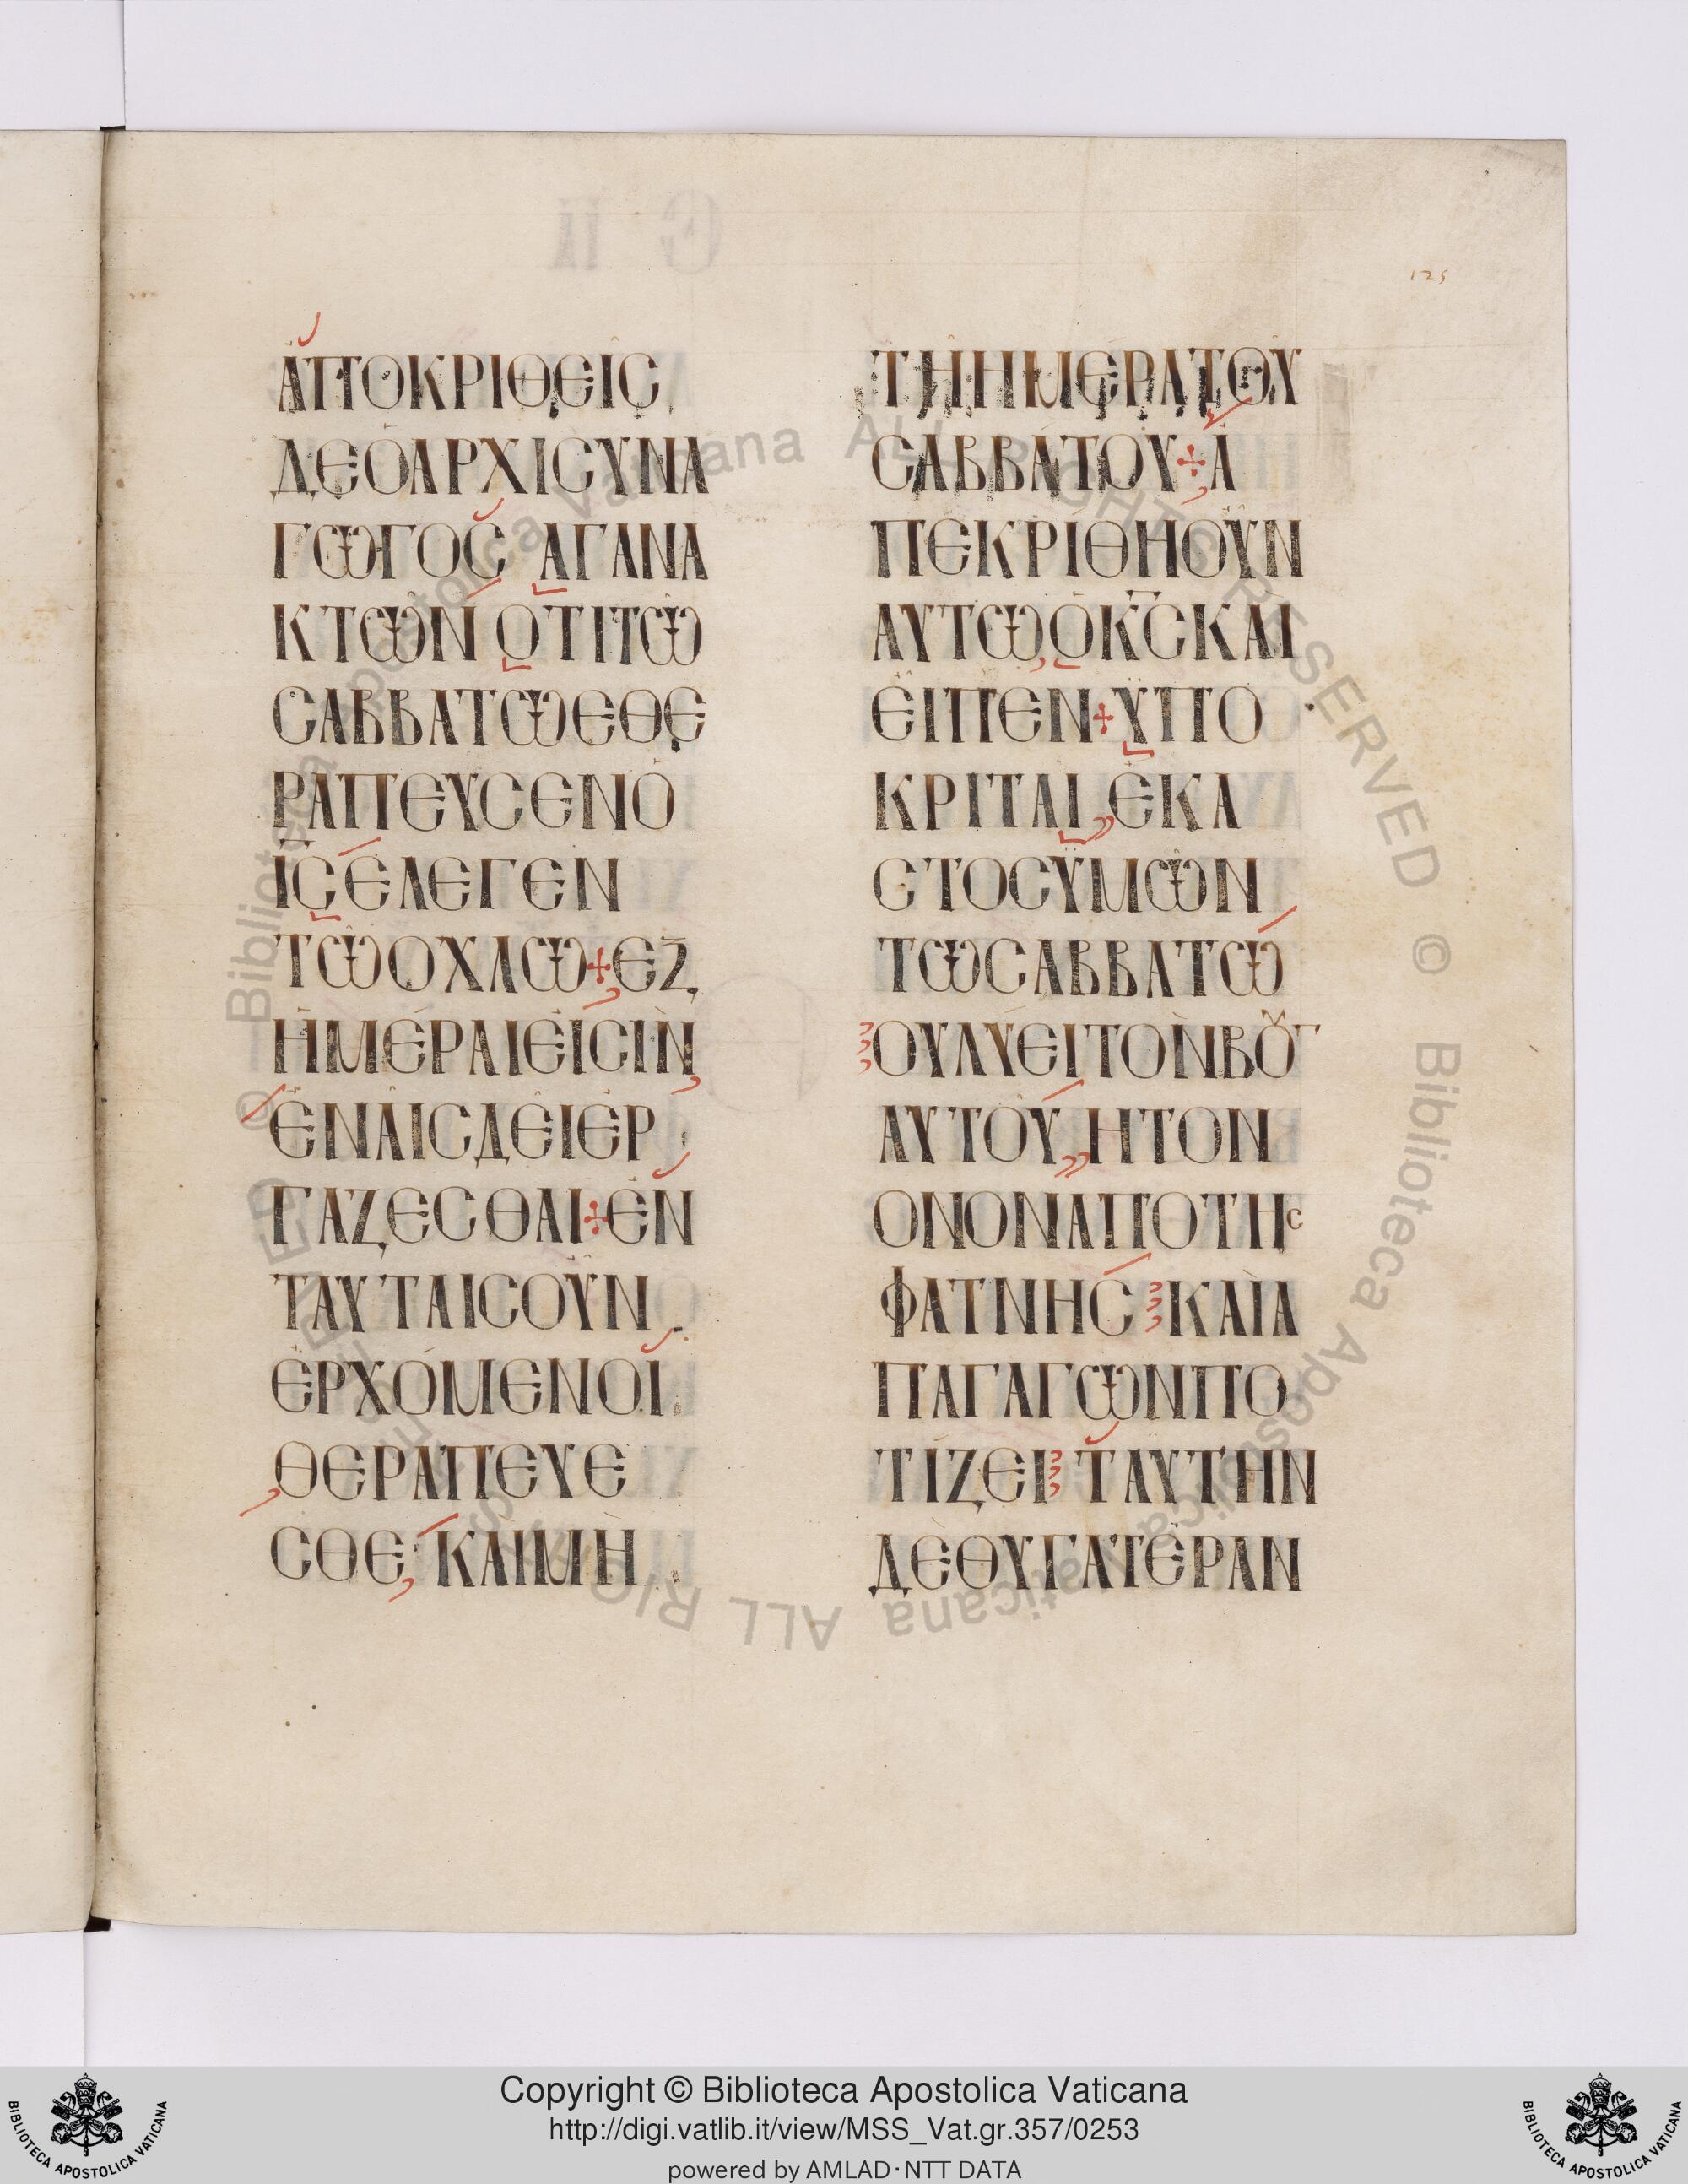 125
ΑΠΟΚΡΙΘΕΙC
ΔΕΟΑΡΧΙCΥΝΑ
ΓΩΓΟC ΑΓΑΝΑ
ΚΤΩΝ ΟΤΙΤΩ
CΑΒΒΑΤΩΕΘΕ
ΡΑΠΕΥCΕΝΟ
ΙC ΕΛΕΓΕΝ
ΤΩΟΧΛΩ+ΕΞ
ΗΜΕΡΑΙΕΙCΙΝ
ΕΝΑΙCΔΕΙΕΡ
ΓΑΖΕCΘΑΙ+ΕΝ
ΤΑΥΤΑΙCΟΥΝ
ΕΡΧΟΜΕΝΟΙ
ΘΕΡΑΠΕΥΕ
CΘΕ, ΚΑΙΜΗ
ΤΗΗΜΕΡΑΤΟΥ
CΑΒΒΑΤΟΥ+Α
ΠΕΚΡΙΘΗΟΥΝ
ΑΥΤΩΟΚCΚΑΙ
ΕΙΠΕΝ+ΥΠΟ
ΚΡΙΤΑΙ ΕΚΑ
CΤΟCΥΜΩΝ
ΤΩCΑΒΒΑΤΩ
ΟΥΛΥΕΙΤΟΝΒΟΓ
ΑΥΤΟΥ ΗΤΟΝ
ΟΝΟΝΑΠΟΤΗC
ΦΑΤΝΗC ΚΑΙΑ
ΠΑΓΑΓΩΝΠΟ
ΤΙΖΕΙ ΤΑΥΤΗΝ
ΔΕΘΥΓΑΤΕΡΑΝ
© Biblioteca Apostolica Vaticana ALL RIGHTS RESERVED © Biblioteca Apostolica Vaticana ALL RIGHTS RESERVED
Copyright © Biblioteca Apostolica Vaticana
http://digi.vatlib.it/view/MSS_Vat.gr.357/0253
powered by AMLAD·NTT DATA
BIBLIOTECA APOSTOLICA VATICANA
BIBLIOTECA APOSTOLICA VATICANA